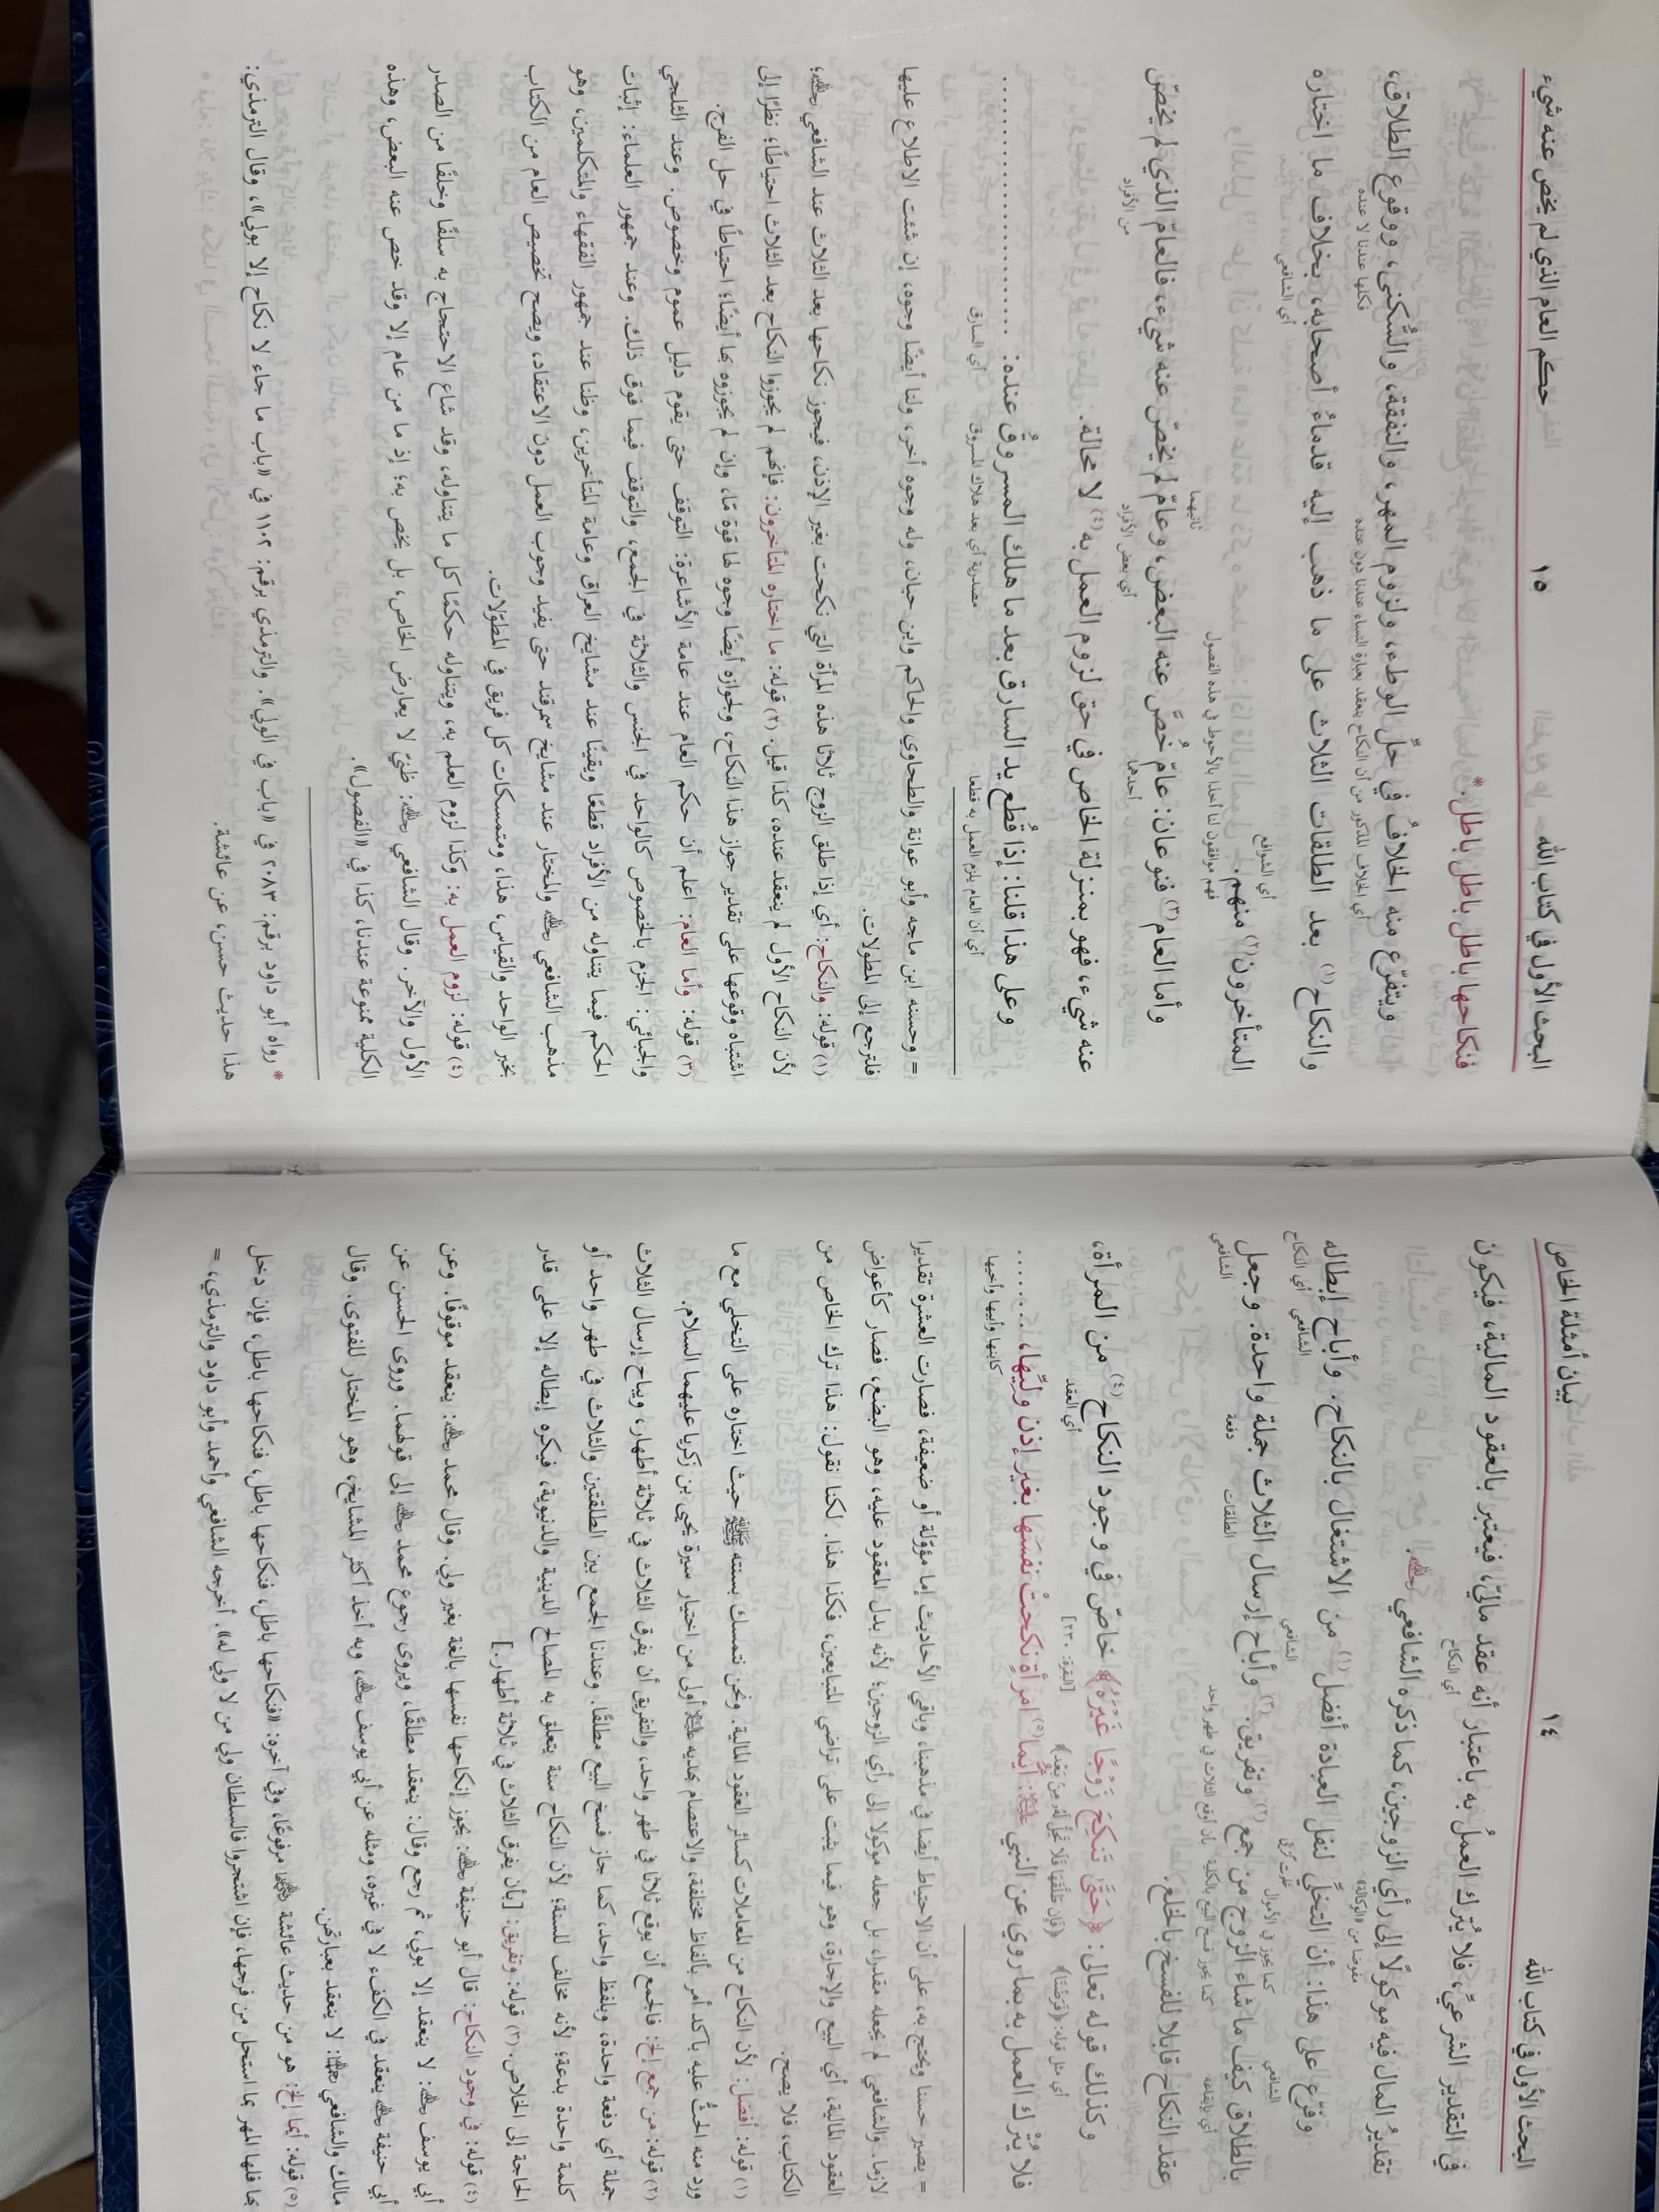 البحث الأول في كتاب الله ١٤ بيان أمثلة الخاص
في التقدير الشرعيّ، فلا يُترك العملُ به باعتبار أنه عقد ماليّ، فيعتبر بالعقود المالية، فيكون
أي النكاح
تقديرُ المال فيه موكولًا إلى رأي الزوجين، كما ذكره الشافعي رحمه الله.
مفوضا من «الوكالة»
وفرّع على هذا: أن التخلّيَ لنفل العبادة أفضل (١) من الاشتغال بالنكاح. وأباح إبطاله
الشافعي الشافعي الشافعي أي النكاح
بالطلاق كيف ما شاء الزوج من جمع (٢) وتفريق. (٣) وأباح إرسال الثلاث جملة واحدة. وجعل
كما يجوز في الأموال الطلقات دفعة الشافعي
عقد النكاح قابلا للفسخ بالخلع.
أي بإيقاعه كما يجوز فسخ البيع بالإقالة بأن أوقع الثلاث في طهر واحد
وكذلك قوله تعالى: ﴿حَتَّىٰ تَنكِحَ زَوْجًا غَيْرَهُ﴾ خاصّ في وجود النكاح (٤) من المرأة،
أي مثل قوله: ﴿فَرَضْنَا﴾ ﴿فَإِن طَلَّقَهَا فَلَا تَحِلُّ لَهُ مِنْ بَعْدُ﴾ [البقرة: ٢٣٠] أي العقد
فلا يُتْرك العمل به بما روي عن النبي عليه السلام: أيما (٥) امرأة نكحتْ نفسَها بغير إذن وليّها، .......
كابنها وأبيها وأخيها
= يصير حسنا ويحتج به، على أن الاحتياط أيضا في مذهبنا، وباقي الأحاديث إما مؤوّلة أو ضعيفة، فصارت العشرة تقديرا
لازما. والشافعي لم يجعله مقدرا، بل جعله موكولا إلى رأي الزوجين؛ لأنه بدل المعقود عليه، وهو البضع، فصار كأعواض
العقود المالية، أي البيع والإجارة، وهو فيما يثبت على تراضي المتبايعين، فكذا هذا. لكنا نقول: هذا ترك الخاص من
الكتاب، فلا يصح.
(١) قوله: أفضل: لأن النكاح من المعاملات كسائر العقود المالية. ونحن نتمسك بسنته ﷺ حيث اختاره على التخلي مع ما
ورد منه الحثّ عليه بآكد أمر بألفاظ مختلفة، والاعتصام بهديه عليه السلام أولى من اختيار سيرة يحيى بن زكريا عليهما السلام.
(٢) قوله: من جمع إلخ: فالجمع أن يوقع ثلاثا في طهر واحد، والتفريق أن يفرق الثلاث في ثلاثة أطهار، ويباح إرسال الثلاث
جملة أي دفعة واحدة، وبلفظ واحد، كما جاز فسخ البيع مطلقًا. وعندنا الجمع بين الطلقتين والثلاث في طهر واحد أو
كلمة واحدة بدعة؛ لأنه مخالف للسنة؛ لأن النكاح سنة يتعلق به المصالح الدينية والدنيوية، فيكره إبطاله إلا على قدر
الحاجة إلى الخلاص. (٣) قوله: وتفريق: [بأن يفرق الثلاث في ثلاثة أطهار.]
(٤) قوله: في وجود النكاح: قال أبو حنيفة رحمه الله: يجوز إنكاحها نفسها بالغة بغير ولي. وقال محمد رحمه الله: ينعقد موقوفًا. وعن
أبي يوسف رحمه الله: لا ينعقد إلا بولي، ثم رجع وقال: ينعقد مطلقًا، ويروى رجوع محمد رحمه الله إلى قولهما. وروى الحسن عن
أبي حنيفة رحمه الله ينعقد في الكفء لا في غيره، ومثله عن أبي يوسف رحمه الله، وبه أخذ أكثر المشايخ، وهو المختار للفتوى. وقال
مالك والشافعي رحمهما الله: لا ينعقد بعبارتهن.
(٥) قوله: أيما إلخ: هو من حديث عائشة رضي الله عنها مرفوعًا، وفي آخره: «فنكاحها باطل، فنكاحها باطل، فنكاحها باطل، فإن دخل
بها فلها المهر بما استحل من فرجها، فإن اشتجروا فالسلطان ولي من لا ولي له». أخرجه الشافعي وأحمد وأبو داود والترمذي، =
البحث الأول في كتاب الله ١٥ حكم العام الذي لم يخص عنه شيء
فنكاحها باطل باطل باطل.*
ويتفرّع منه الخلافُ في حلّ الوطء، ولزوم المهر، والنفقة، والسُّكنى، ووقوع الطلاق،
أي الخلاف المذكور من أن النكاح ينعقد بعبارة النساء عندنا دون عنده فكلها عندنا لا عنده
والنكاح (١) بعد الطلقات الثلاث على ما ذهب إليه قدماءُ أصحابه، بخلاف ما اختاره
أي الشوافع أي الشافعي
المتأخرون (٢) منهم.
فهم موافقون لنا أخذا بالأحوط في هذه الفصول
وأما العام (٣) فنوعان: عامّ خُصَّ عنه البعض، وعامّ لم يخصّ عنه شيء، فالعامّ الذي لم يخصّ
أحدهما أي بعض الأفراد ثانيهما من الأفراد
عنه شيء، فهو بمنزلة الخاص في حق لزوم العمل به (٤) لا محالة.
وعلى هذا قلنا: إذا قُطع يد السارق بعد ما هلك المسروقُ عنده: ..............................
أي أن العام يلزم العمل به قطعا مصدرية أي بعد هلاك المسروق أي السارق
= وحسنه ابن ماجه وأبو عوانة والطحاوي والحاكم وابن حبان، وله وجوه أخر، ولنا أيضًا وجوه، إن شئت الاطلاع عليها
فلترجع إلى المطولات.
(١) قوله: والنكاح: أي إذا طلق الزوج ثلاثا هذه المرأة التي نكحت بغير الإذن، فيجوز نكاحها بعد الثلاث عند الشافعي رحمه الله؛
لأن النكاح الأول لم ينعقد عنده، كذا قيل. (٢) قوله: ما اختاره المتأخرون: فإنهم لم يجوزوا النكاح بعد الثلاث احتياطًا؛ نظرًا إلى
اشتباه وقوعها على تقدير جواز هذا النكاح، ولجوازه أيضًا وجوه لها قوة مّا، وإن لم يجوزوه بها أيضًا؛ احتياطًا في حل الفرج.
(٣) قوله: وأما العام: اعلم أن حكم العام عند عامة الأشاعرة: التوقف حتى يقوم دليل عموم وخصوص. وعند الثلجي
والجبائي: الجزم بالخصوص كالواحد في الجنس والثلاثة في الجمع، والتوقف فيما فوق ذلك. وعند جمهور العلماء: إثبات
الحكم فيما يتناوله من الأفراد قطعًا ويقينًا عند مشايخ العراق وعامة المتأخرين، وظنا عند جمهور الفقهاء والمتكلمين، وهو
مذهب الشافعي رحمه الله والمختار عند مشايخ سمرقند حتى يفيد وجوب العمل دون الاعتقاد، ويصح تخصيص العام من الكتاب
بخبر الواحد والقياس، هذا، ومتمسكات كل فريق في المطوّلات.
(٤) قوله: لزوم العمل به: وكذا لزوم العلم به، ويتناوله حكمًا كل ما يتناوله، وقد شاع الاحتجاج به سلفًا وخلفًا من الصدر
الأول والآخر. وقال الشافعي رحمه الله: ظنيّ لا يعارض الخاص، بل يخص به؛ إذ ما من عام إلا وقد خص عنه البعض، وهذه
الكلية ممنوعة عندنا، كذا في «الفصول».
* رواه أبو داود برقم: ٢٠٨٣ في «باب في الولي». والترمذي برقم: ١١٠٢ في «باب ما جاء لا نكاح إلا بولي»، وقال الترمذي:
هذا حديث حسن، عن عائشة.